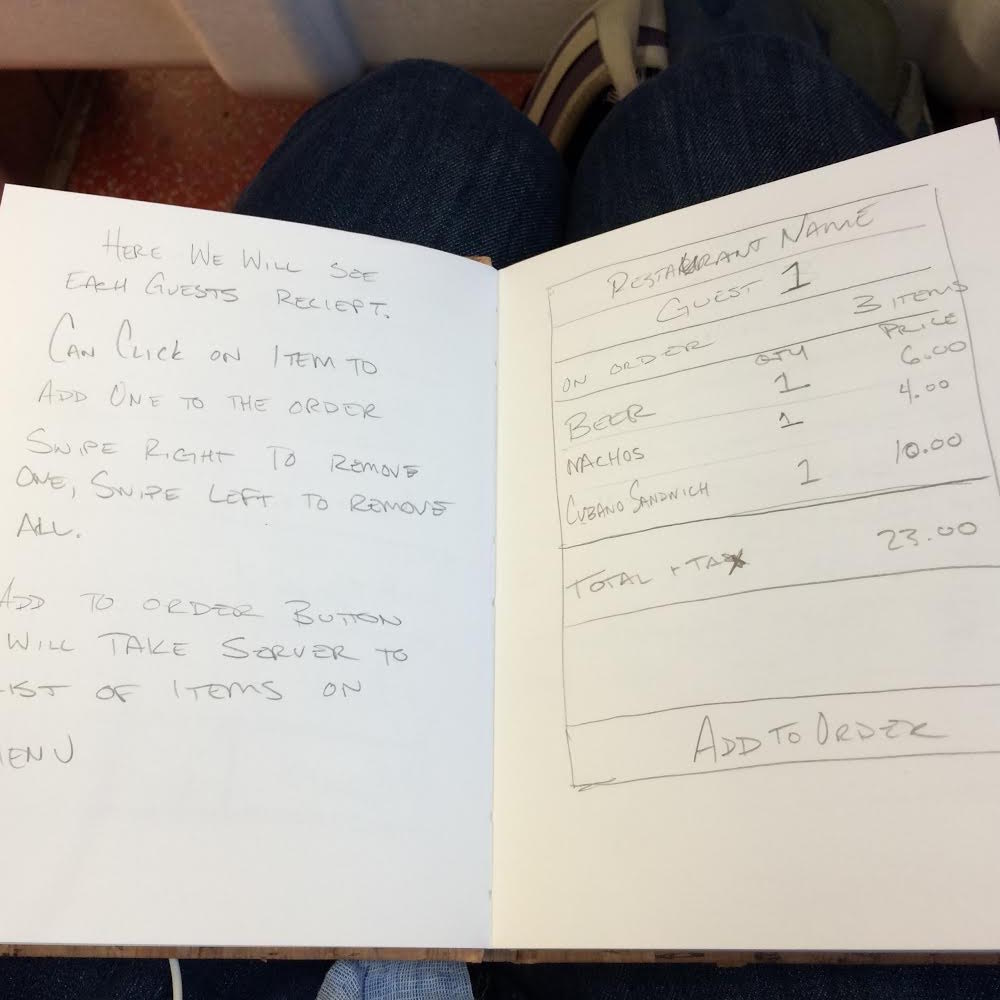 HERE WE WILL SEE
EACH GUESTS RECIEPT.
CAN CLICK ON ITEM TO
ADD ONE TO THE ORDER
SWIPE RIGHT TO REMOVE
ONE, SWIPE LEFT TO REMOVE
ALL.
ADD TO ORDER BUTTON
WILL TAKE SERVER TO
LIST OF ITEMS ON
MENU
RESTAURANT NAME
GUEST 1
3 ITEMS
ON ORDER QTY PRICE
BEER 1 6.00
NACHOS 1 4.00
CUBANO SANDWICH 1 10.00
TOTAL + TAX 23.00
ADD TO ORDER